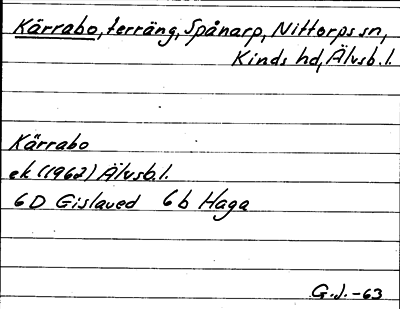 Kärrabo, terräng, Spånarp, Nittorps sn,
Kinds hd, Älvsb. l.
Kärrabo
ek (1962) Älvsb. l.
6D Gislaved 6b Haga
G.J. -63